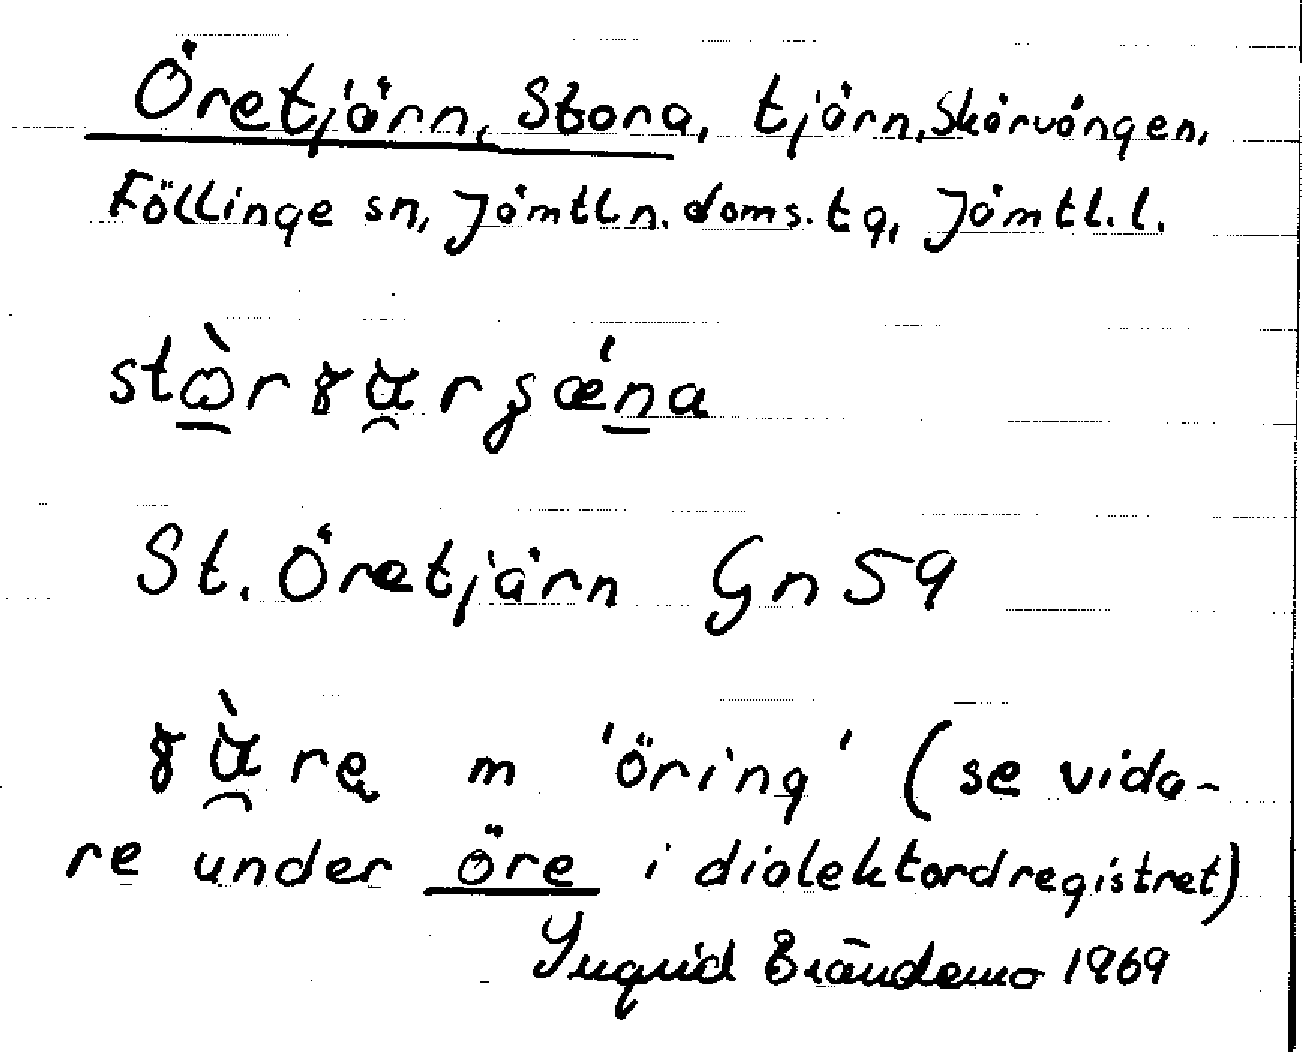 Öretjärn, Stora, tjärn, Skärvången,
Föllinge sn, Jämtl n. doms. tg, Jämtl. l.
St. Öretjärn Gn 59
m 'öring' (se vida-
re under öre i dialektordregistret)
Ingrid Brändemo 1969